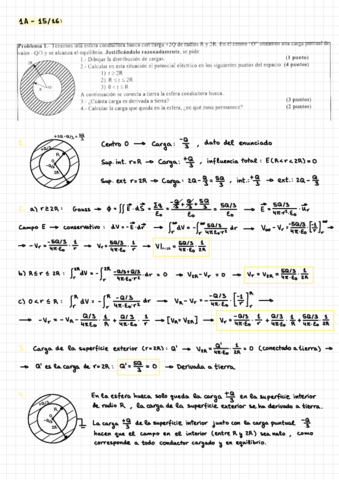 1A - 15/16:
Problema 1.- Tenemos una esfera conductora hueca con carga +2Q de radios R y 2R. En el centro "O" tenemos una carga puntual de
valor -Q/3 y se alcanza el equilibrio. Justificándolo razonadamente, se pide:
1 - Dibujar la distribución de cargas. (3 puntos)
2 - Calcular en esta situación el potencial eléctrico en los siguientes puntos del espacio (4 puntos)
1) r ≥ 2R
2) R ≤ r ≤ 2R
3) 0 < r ≤ R
A continuación se conecta a tierra la esfera conductora hueca.
3 - ¿Cuánta carga es derivada a tierra? (3 puntos)
4 - Calcular la carga que queda en la esfera, ¿en qué zona permanece? (2 puntos)
1.
+2Q-Q/3 = 5Q/3
Centro O → Carga: -Q/3 , dato del enunciado
Sup. int. r=R → Carga: +Q/3 , influencia total: E(R<r<2R)=0
Sup. ext r=2R → Carga: 2Q - Q/3 = 5Q/3 , int.: +Q/3 → ext.: 2Q - Q/3
2. a) r≥2R: Gauss → Φ = ∬ E·ds = Σq/ε₀ = (-Q/3 + Q/3 + 5Q/3)/ε₀ = (5Q/3)/ε₀ → E = (5Q/3)/(4π·r²·ε₀) · ur
Campo E → conservativo: dV = -E·dr → ∫r^∞ dV = -∫r^∞ (5Q/3)/(4π·ε₀·r²) dr → V∞ - Vr = -(5Q/3)/(4π·ε₀) [-1/r]r^∞ →
→ -Vr = -(5Q/3)/(4π·ε₀) · 1/r → Vr = (5Q/3)/(4π·ε₀) · 1/r → V|r=2R = (5Q/3)/(4π·ε₀) · 1/2R
b) R≤r≤2R: ∫r^2R dV = -∫r^2R (-Q/3+Q/3)/(4π·ε₀·r²) dr = 0 → V2R - Vr = 0 → Vr = V2R = (5Q/3)/(4π·ε₀) · 1/2R
c) 0<r≤R: ∫r^R dV = -∫r^R (-Q/3)/(4π·ε₀·r²) dr → VR - Vr = -(-Q/3)/(4π·ε₀) · [-1/r]r^R →
→ -Vr = -VR - (Q/3)/(4π·ε₀) · 1/R + (Q/3)/(4π·ε₀) · 1/r → [VR = V2R] → Vr = (-Q/3)/(4π·ε₀) · 1/r + (Q/3)/(4π·ε₀) · 1/R + (5Q/3)/(4π·ε₀) · 1/2R
3. Carga de la superficie exterior (r=2R): Q' → V2R = Q'/(4π·ε₀) · 1/2R = 0 (conectado a tierra) →
→ Q' es la carga de r=2R: Q' = 5Q/3 = 0 → Derivada a tierra.
4.
En la esfera hueca solo queda la carga +Q/3 en la superficie interior
de radio R , la carga de la superficie exterior se ha derivado a tierra.
La carga +Q/3 de la superficie interior junto con la carga puntual -Q/3
hacen que el campo en el interior (entre R y 2R) sea nulo , como
corresponde a todo conductor cargado y en equilibrio.